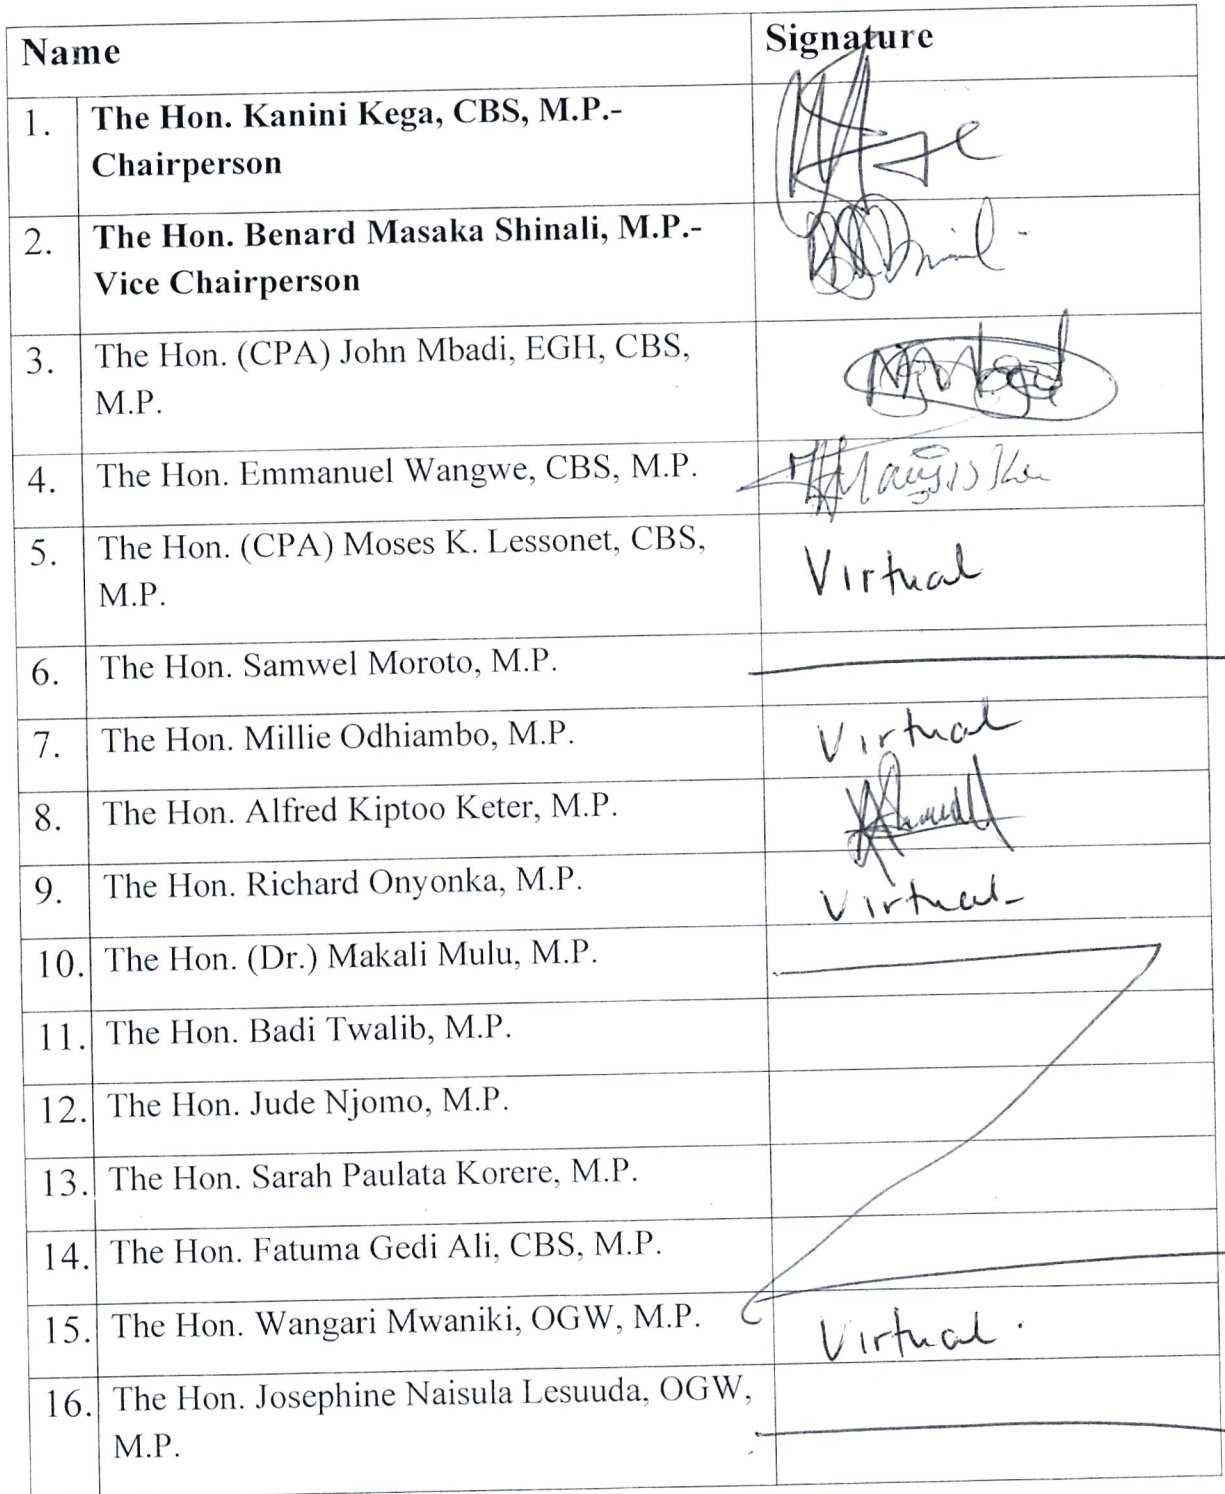 Name Signature
1. The Hon. Kanini Kega, CBS, M.P.-
Chairperson
2. The Hon. Benard Masaka Shinali, M.P.-
Vice Chairperson
3. The Hon. (CPA) John Mbadi, EGH, CBS,
M.P.
4. The Hon. Emmanuel Wangwe, CBS, M.P.
5. The Hon. (CPA) Moses K. Lessonet, CBS, Virtual
M.P.
6. The Hon. Samwel Moroto, M.P.
7. The Hon. Millie Odhiambo, M.P. Virtual
8. The Hon. Alfred Kiptoo Keter, M.P.
9. The Hon. Richard Onyonka, M.P. Virtual
10. The Hon. (Dr.) Makali Mulu, M.P.
11. The Hon. Badi Twalib, M.P.
12. The Hon. Jude Njomo, M.P.
13. The Hon. Sarah Paulata Korere, M.P.
14. The Hon. Fatuma Gedi Ali, CBS, M.P.
15. The Hon. Wangari Mwaniki, OGW, M.P. Virtual.
16. The Hon. Josephine Naisula Lesuuda, OGW,
M.P.